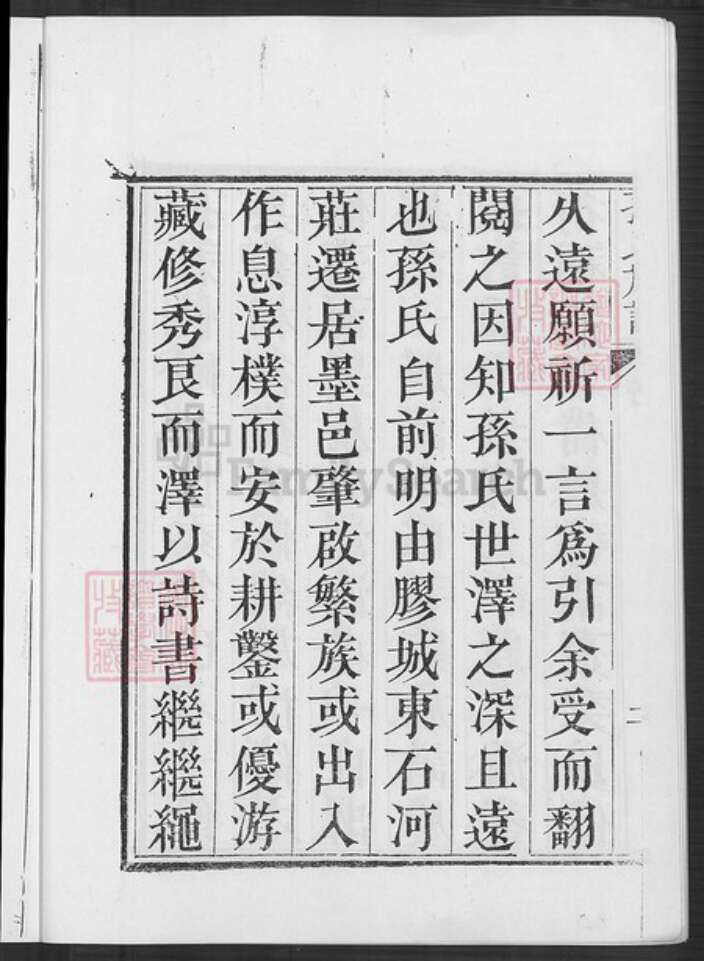 久遠願祈一言為引余受而翻
閱之因知孫氏世澤之深且遠
也孫氏自前明由膠城東石河
莊遷居墨邑肇啟繁族或出入
作息淳樸而安於耕鑿或優游
藏修秀良而澤以詩書繼繼繩
FamilySearch